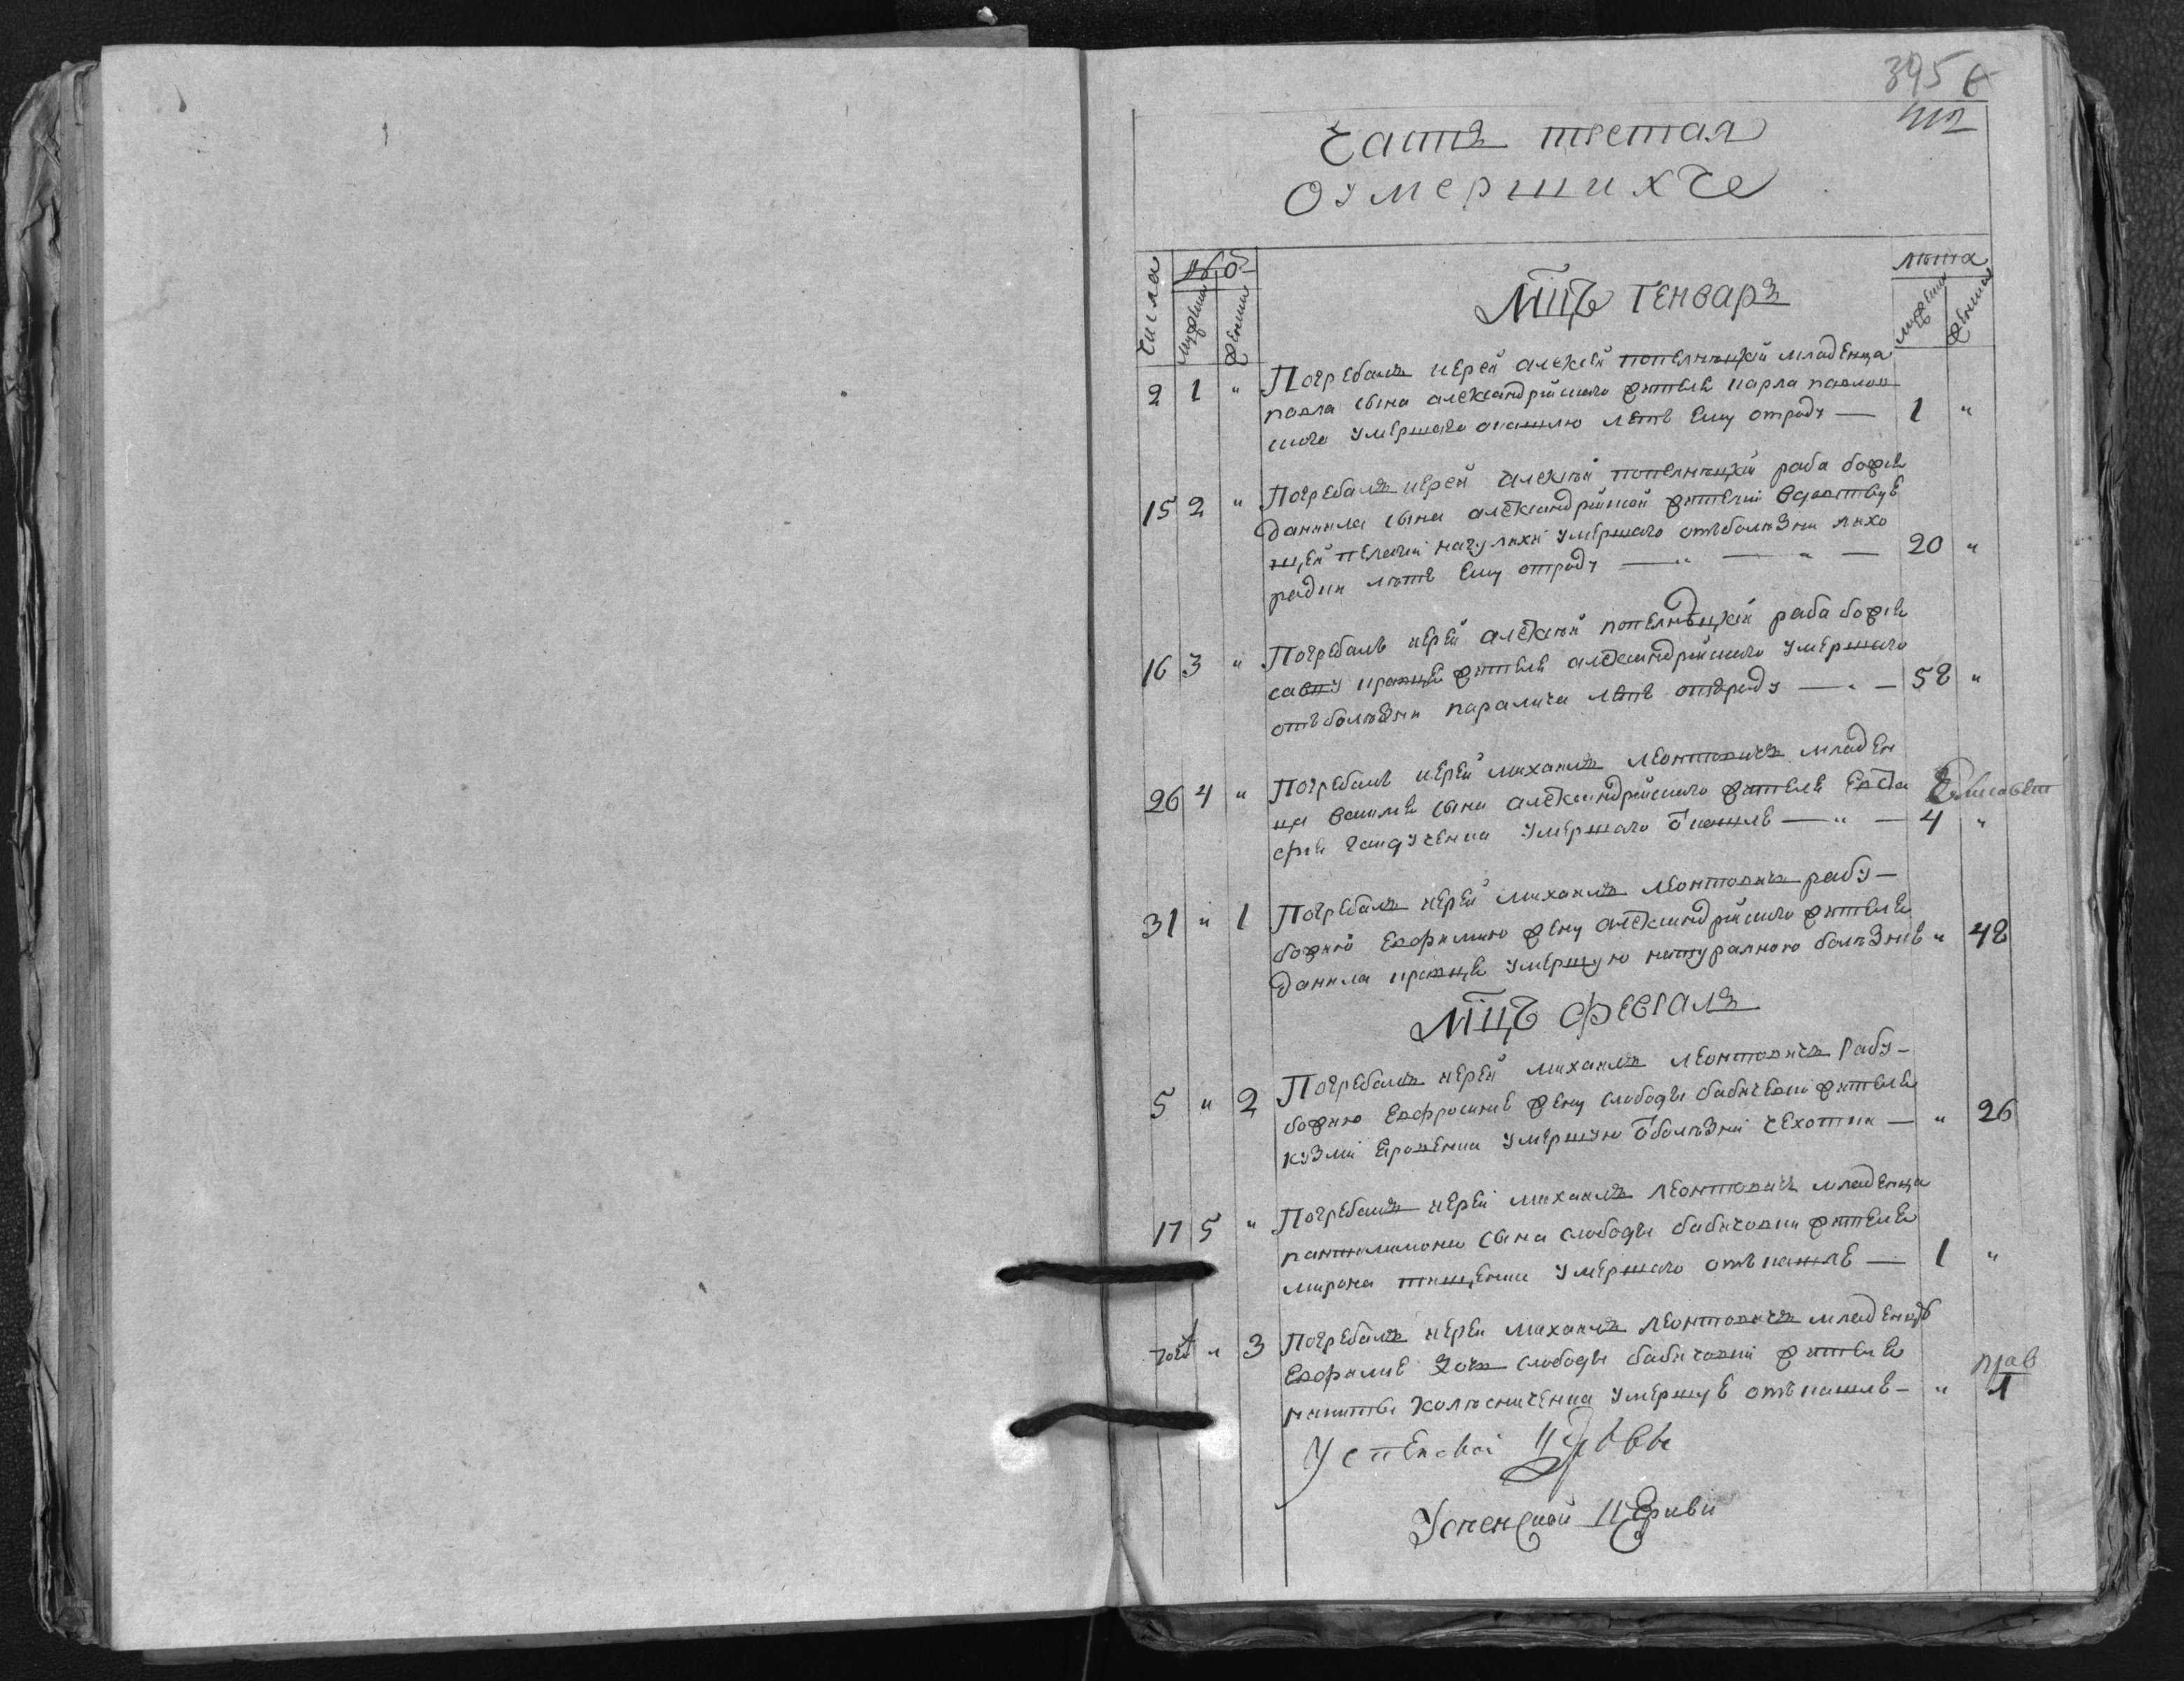 395 б
412
Часть третая
О умершихъ
числа
№ó
мужескъ
женски
Мц̃ъ Генварь
лѣта
мужеск
женска
2 1 " Погребалъ иерей алексѣй попелницкій младенца
павла сына александрійского жителя карла павлов
ского умершаго окашлю летъ ему отроду — 1 "
15 2 " Погребалъ иерей алексѣй попелницкій раба божія
даниила сына александрійской жителки вдовствує
щей пелагіи умершаго отъ болѣзни лихо
радки лѣтъ ему отроду — " — " — 20 "
16 3 " Погребалъ иерей алексѣй попелницкій раба божія
савву кравця жителя александрійского умершаго
отъ болѣзни паралича летъ отъ роду — " — 58 "
26 4 " Погребалъ иерей михаилъ леонтовичъ младен
ца василия сына александрійского жителя евста
фія умершаго о̃ кашля — " — 4 "
Елисавет
31 " 1 Погребалъ иерей михаилъ леонтовичъ рабу —
божию евфимию жену александрійского жителя
данила кравця умершую натуралною болѣзнів " 48
Мц̃ъ Февралъ
5 " 2 Погребалъ иерей михаилъ леонтовичъ Рабу —
божию евфросинію жену слободы бабичовки жителя
кузми умершую о̃ болѣзни чехотки — " 26
17 5 " Погребалъ иерей михаилъ леонтовичъ младенца
пантилимона сына слободы бабичовки жителя
мирона тищенка умершаго отъ кашля — 1 "
тогож " 3 Погребалъ иерей михаилъ леонтовичъ младенцъ
евфимию дочь слободы бабичовки жителя
никиты колесниченка умершую отъ кашля — " 1
прав
Успенской церквы
Успенской Церкви